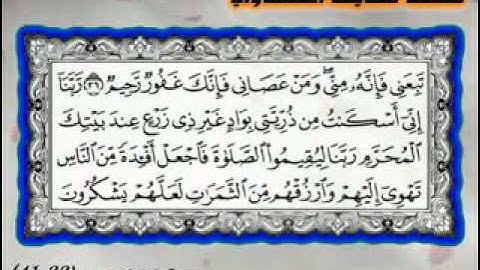 تَبِعَنِى فَإِنَّهُۥ مِنِّى ۖ وَمَنْ عَصَانِى فَإِنَّكَ غَفُورٌ رَّحِيمٌ ٣٦ رَّبَّنَآ
إِنِّىٓ أَسْكَنتُ مِن ذُرِّيَّتِى بِوَادٍ غَيْرِ ذِى زَرْعٍ عِندَ بَيْتِكَ
ٱلْمُحَرَّمِ رَبَّنَا لِيُقِيمُوا۟ ٱلصَّلَوٰةَ فَٱجْعَلْ أَفْـِٔدَةً مِّنَ ٱلنَّاسِ
تَهْوِىٓ إِلَيْهِمْ وَٱرْزُقْهُم مِّنَ ٱلثَّمَرَٰتِ لَعَلَّهُمْ يَشْكُرُونَ